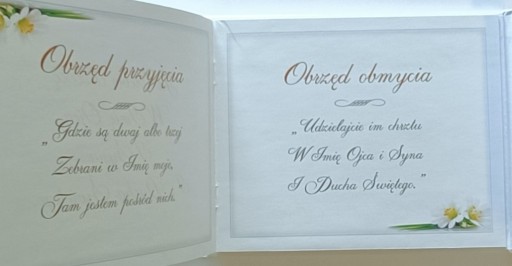 Obrzęd przyjęcia
„Gdzie są dwaj albo trzej
Zebrani w Imię moje,
Tam jestem pośród nich."
Obrzęd obmycia
„Udzielajcie im chrztu
W Imię Ojca i Syna
I Ducha Świętego."